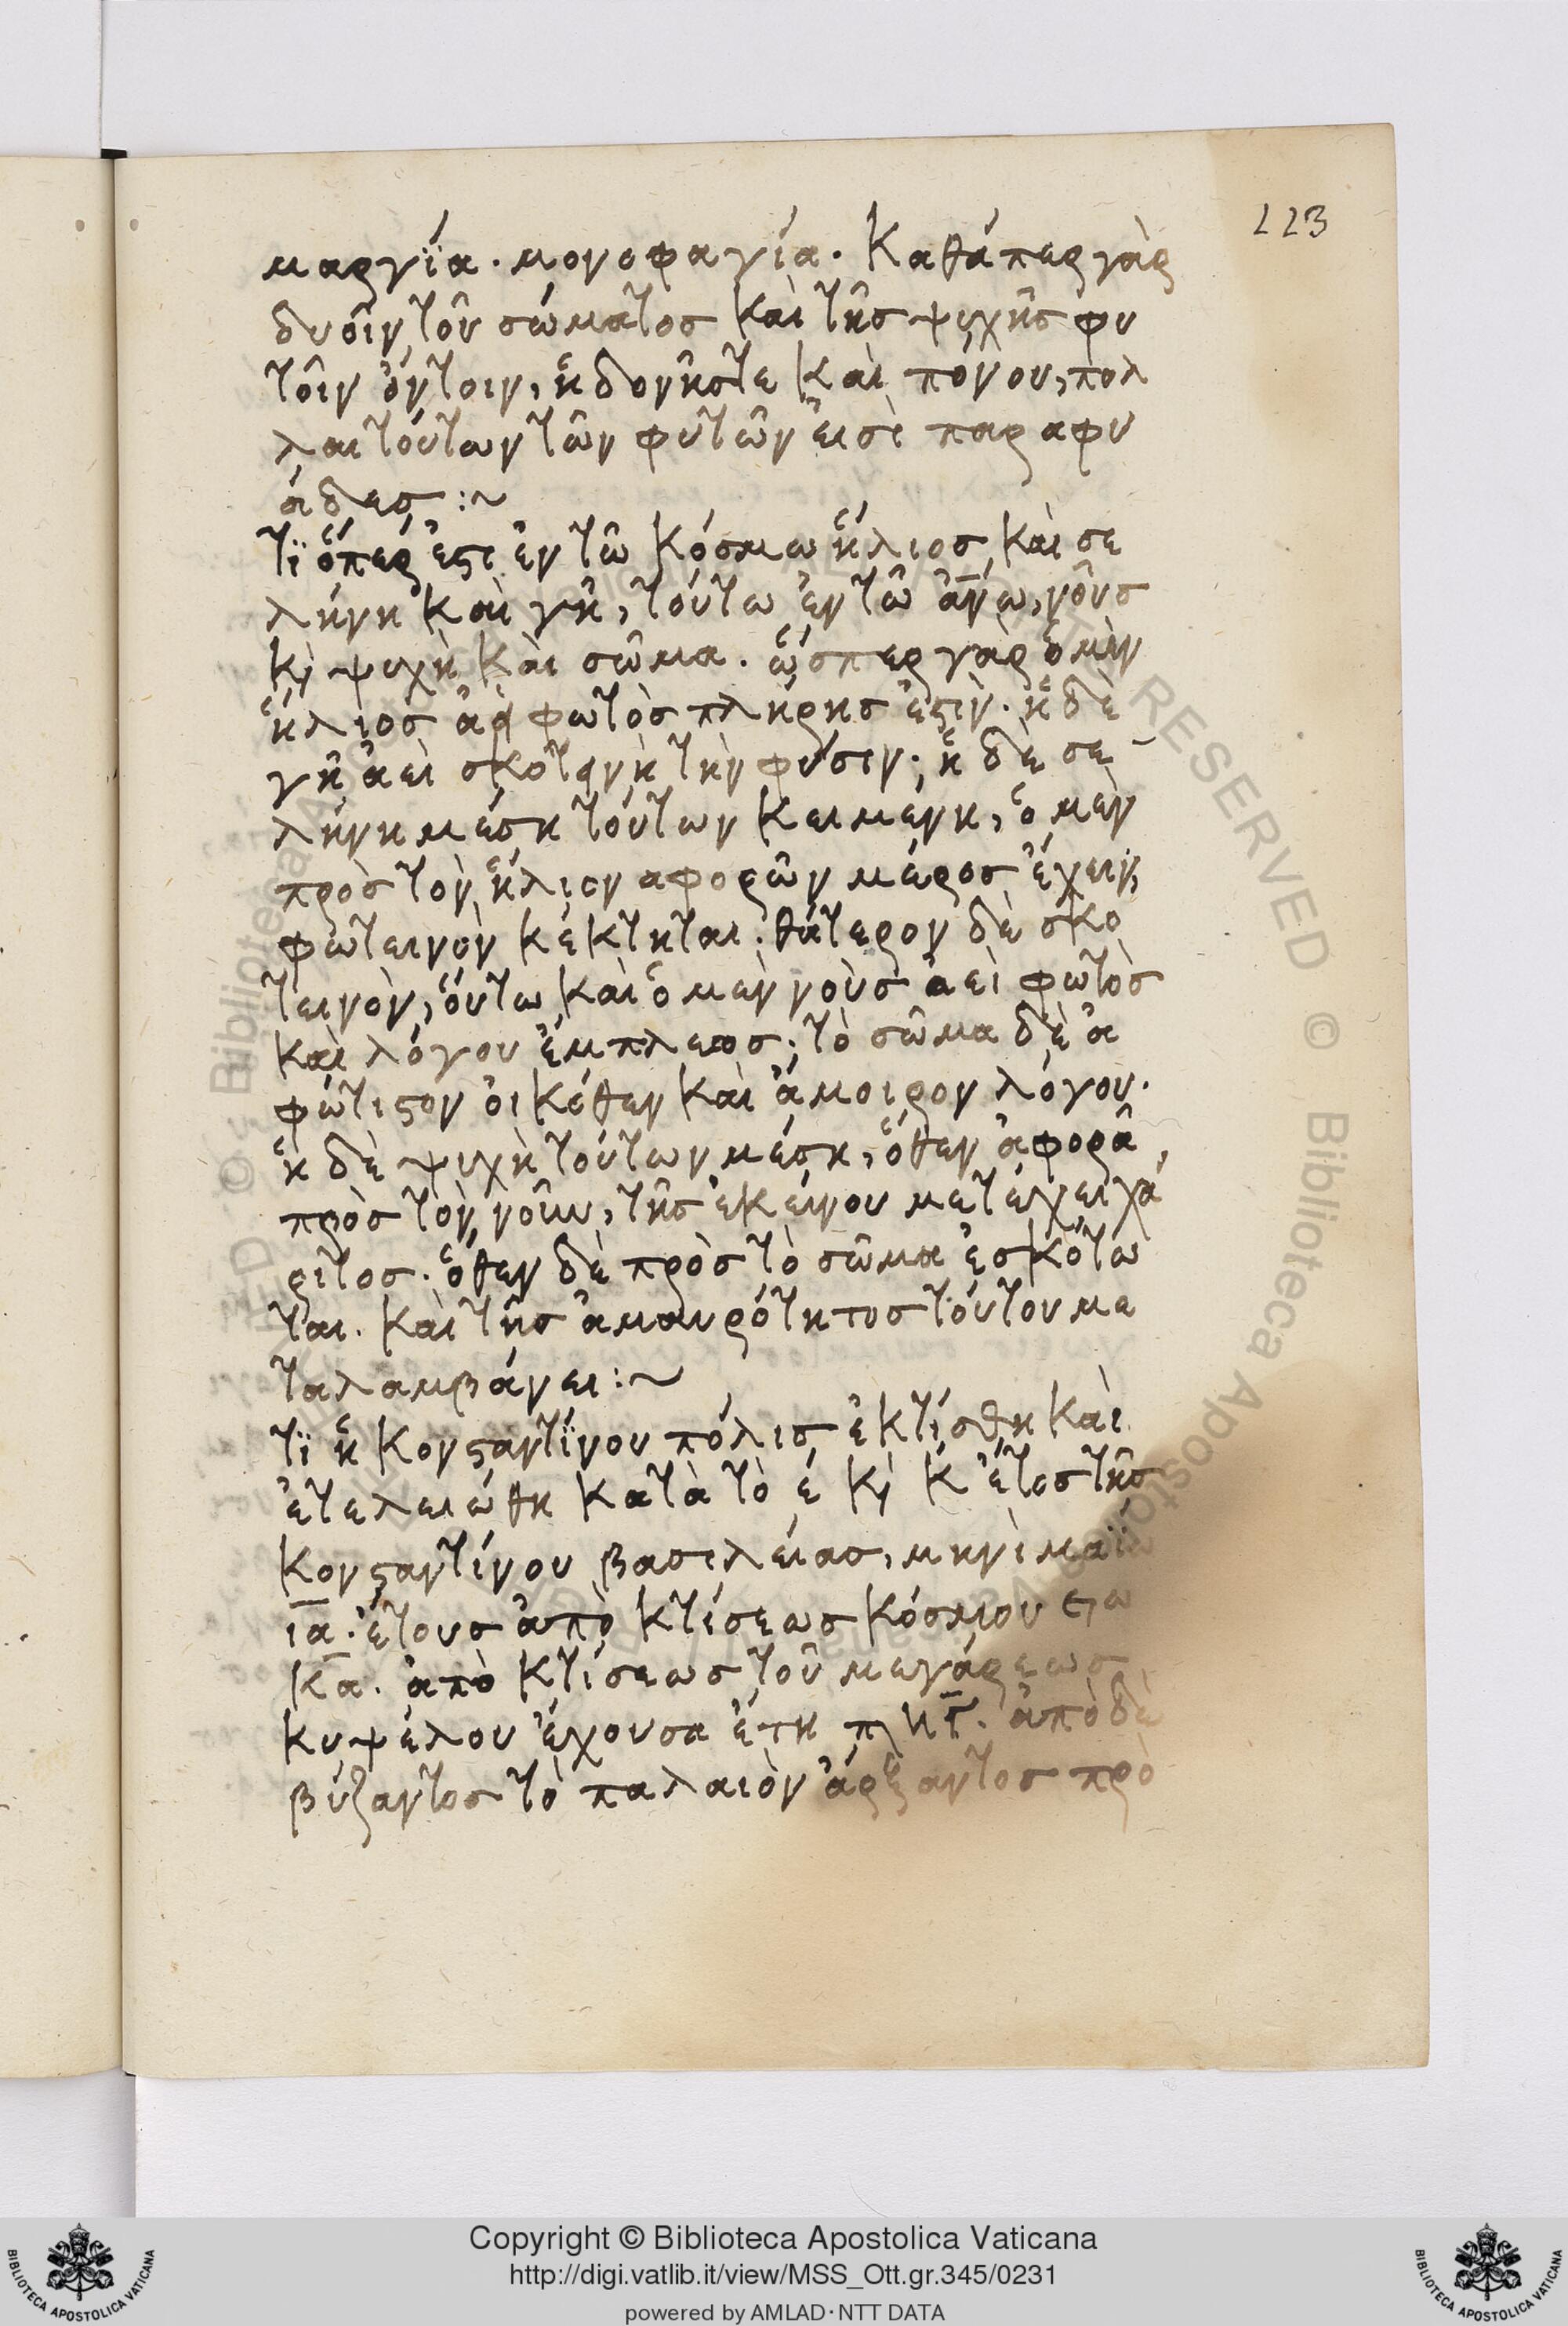 223
μαργΐα. μονοφαγία. Καθάπερ γὰρ
δυοῖν τοῦ σώματος καὶ τῆς ψυχῆς φυ
τοῖν ὄντοιν, ἡδονῆς τε καὶ πόνου, πολ
λαι τούτων τῶν φυτῶν εἰσὶ παραφυ
άδες :~
τϊ ὅπέρ ἐστι ἐν τῶ κόσμω ἥλιος καὶ σε
λήνη καὶ γῆ, τούτω ἐν τῶ ἀν̅ω, νοῦς
κ̀ ψυχὴ καὶ σῶμα. ὥσπερ γὰρ ὁ μὲν
ἥλιος ἀεὶ φωτὸς πλήρης ἐστὶν. ἡ δὲ
γῆ ἀεὶ σκοτεινὴ τὴν φύσιν; ἡ δὲ σε
λήνη μέση τούτων κειμένη, ὁ μὲν
πρὸς τὸν ἥλιον αφορῶν μέρος ἔχειν,
φωτεινὸν κέκτηται. θάτερον δὲ σκο
τεινὸν, οὕτω καὶ ὁ μὲν νοῦς ἀεὶ φωτὸς
καὶ λόγου ἔμπλεως. τὸ σῶμα δὲ ἀ
φώτιστον οἰκόθεν καὶ ἄμοιρον λόγου.
ἡ δὲ ψυχὴ τούτων μέση, ὅθεν ἀφορᾶ,
πρὸς τὸν νοῦν, τῆς ἐκείνου μετέχει χά
ριτος. ὅθεν δὲ πρὸς τὸ σῶμα ἐσκότω
ται. καὶ τῆς ἀμαυρότητος τούτου με
ταλαμβάνει :~
τϊ ἡ Κονσταντΐνου πόλις ἐκτίσθη καὶ
ἐτελειώθη κατὰ τὸ έ κ̀ κ́ ἔτος τῆς
Κονσταντίνου βασιλείας, μηνὶ μαΐω
ια̅. ἔτους ἀπὸ κτίσεως κόσμου εω
κ̅α. ἀπὸ κτίσεως τοῦ μεγάρεως
Κυψέλου ἔχουσα ἔτη ἀπὸ δὲ
βύζαντος τὸ παλαιὸν ἄρξαντος πρὸ
Copyright © Biblioteca Apostolica Vaticana
http://digi.vatlib.it/view/MSS_Ott.gr.345/0231
powered by AMLAD·NTT DATA